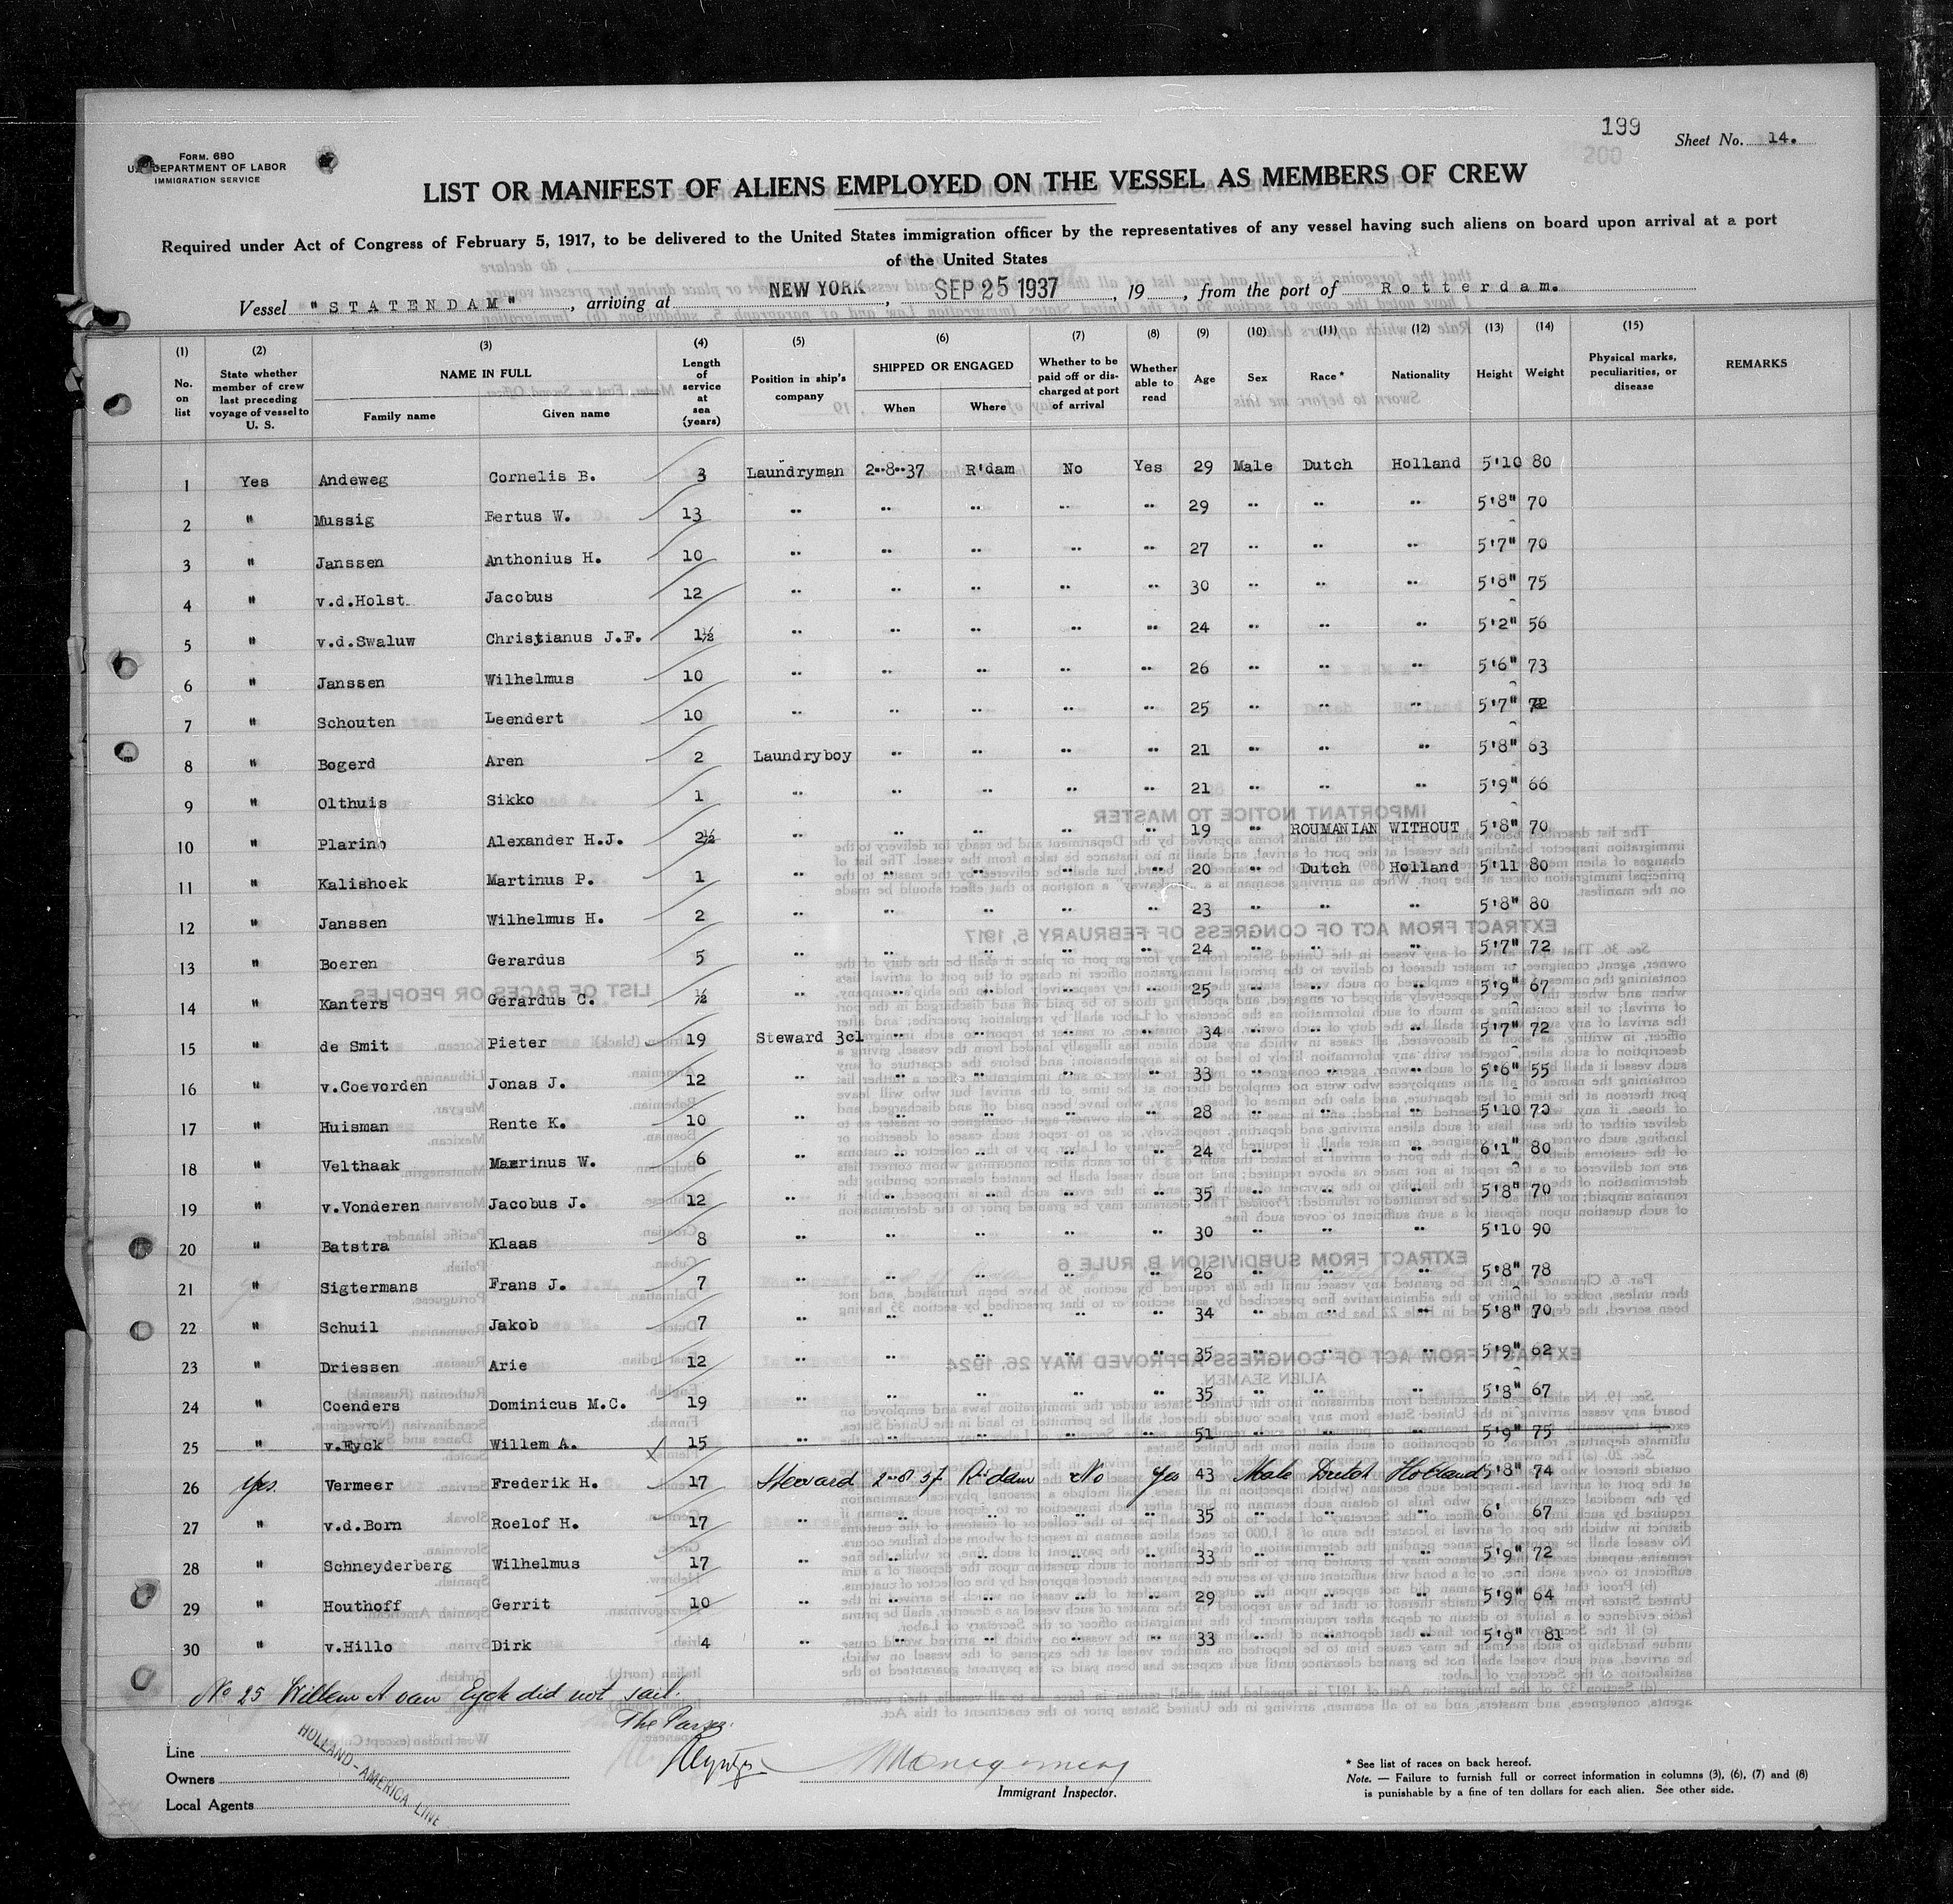 199
200
Sheet No. 14.
FORM. 680
U. S. DEPARTMENT OF LABOR
IMMIGRATION SERVICE
LIST OR MANIFEST OF ALIENS EMPLOYED ON THE VESSEL AS MEMBERS OF CREW
Required under Act of Congress of February 5, 1917, to be delivered to the United States immigration officer by the representatives of any vessel having such aliens on board upon arrival at a port
of the United States
Vessel "STATENDAM", arriving at NEW YORK, SEP 25 1937, 19, from the port of Rotterdam.
(1) (2) (3) (4) (5) (6) (7) (8) (9) (10) (11) (12) (13) (14) (15)
No. on list State whether member of crew last preceding voyage of vessel to U. S. NAME IN FULL Family name Given name Length of service at sea (years) Position in ship's company SHIPPED OR ENGAGED When Where Whether to be paid off or discharged at port of arrival Whether able to read Age Sex Race * Nationality Height Weight Physical marks, peculiarities, or disease REMARKS
1 Yes Andeweg Cornelis B. 3 Laundryman 2-8-37 R'dam No Yes 29 Male Dutch Holland 5'10 80
2 " Mussig Bertus W. 13 " " " " " 29 " " " 5'8" 70
3 " Janssen Anthonius H. 10 " " " " " 27 " " " 5'7" 70
4 " v.d.Holst Jacobus 12 " " " " " 30 " " " 5'8" 75
5 " v.d.Swaluw Christianus J.F. 1½ " " " " " 24 " " " 5'2" 56
6 " Janssen Wilhelmus 10 " " " " " 26 " " " 5'6" 73
7 " Schouten Leendert 10 " " " " " 25 " " " 5'7" 72
8 " Bogerd Aren 2 Laundryboy " " " " 21 " " " 5'8" 63
9 " Olthuis Sikko 1 " " " " " 21 " " " 5'9" 66
10 " Plarino Alexander H.J. 2½ " " " " " 19 " ROUMANIAN WITHOUT 5'8" 70
11 " Kalishoek Martinus P. 1 " " " " " 20 " Dutch Holland 5'11 80
12 " Janssen Wilhelmus H. 2 " " " " " 23 " " " 5'8" 80
13 " Boeren Gerardus 5 " " " " " 24 " " " 5'7" 72
14 " Kanters Gerardus C. ½ " " " " " 25 " " " 5'9" 67
15 " de Smit Pieter 19 Steward 3cl " " " " 34 " " " 5'7" 72
16 " v.Coevorden Jonas J. 12 " " " " " 33 " " " 5'6" 55
17 " Huisman Rente K. 10 " " " " " 28 " " " 5'10 70
18 " Velthaak Marinus W. 6 " " " " " 24 " " " 6'1" 80
19 " v.Vonderen Jacobus J. 12 " " " " " 35 " " " 5'8" 70
20 " Batstra Klaas 8 " " " " " 30 " " " 5'10 90
21 " Sigtermans Frans J. 7 " " " " " 26 " " " 5'8" 78
22 " Schuil Jakob 7 " " " " " 34 " " " 5'8" 70
23 " Driessen Arie 12 " " " " " 35 " " " 5'9" 62
24 " Coenders Dominicus M.C. 19 " " " " " 35 " " " 5'8" 67
25 " v.Eyck Willem A. 15 " " " " " 51 " " " 5'9" 75
26 Yes Vermeer Frederik H. 17 Steward 2-8 37 R'dam No Yes 43 Male Dutch Holland 5'8" 74
27 " v.d.Born Roelof H. 17 " " " " " 35 " " " 6' 67
28 " Schneyderberg Wilhelmus 17 " " " " " 33 " " " 5'9" 72
29 " Houthoff Gerrit 10 " " " " " 29 " " " 5'9" 64
30 " v.Hillo Dirk 4 " " " " " 33 " " " 5'9" 81
No 25 Willem A van Eyck did not sail.
The Purser.
Line
Owners
Local Agents
HOLLAND-AMERICA LINE
Montgomery
Immigrant Inspector.
* See list of races on back hereof.
Note. — Failure to furnish full or correct information in columns (3), (6), (7) and (8)
is punishable by a fine of ten dollars for each alien. See other side.